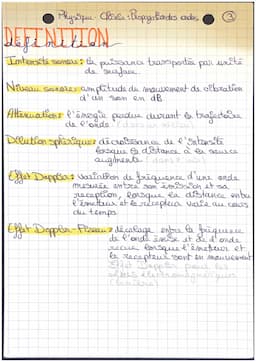 Physique - Chimie : Propagation des ondes ③
DEFINITION
définition
Intensité sonore : la puissance transportée par unité
de surface.
Niveau sonore : amplitude du mouvement de vibration
d'un son en dB
Atténuation : l'énergie perdue durant la trajectoire
de l'onde
Dilution sphérique : décroissance de l'intensité
lorsque la distance à la source
augmente
Effet Doppler : variation de fréquence d'une onde
mesurée entre son émission et sa
réception, lorsque la distance entre
l'émetteur et le récepteur varie au cours
du temps
Effet Doppler-Fizeau : décalage entre la fréquence
de l'onde émise et de l'onde
reçue lorsque l'émetteur et
le récepteur sont en mouvement
Effet Doppler pour les
ondes électromagnétiques
(lumière)